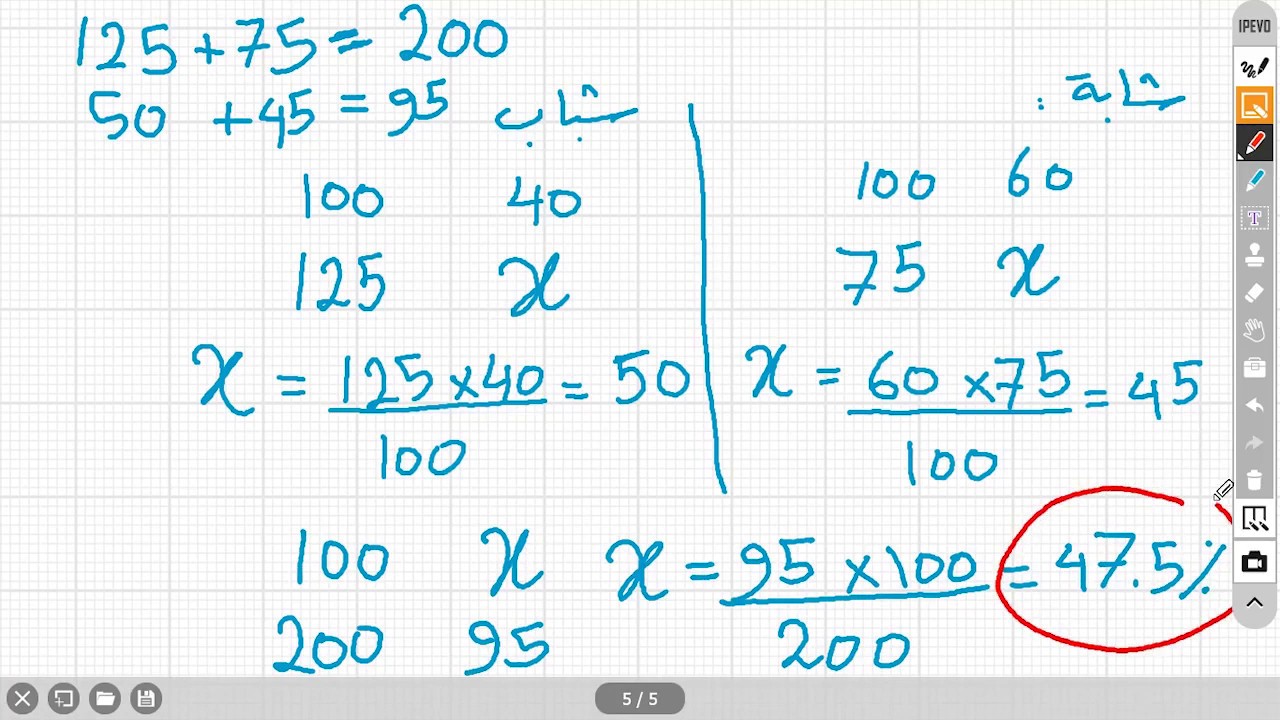 125 + 75 = 200
50 + 45 = 95
شباب
100 40
125 x
x = 125 × 40 / 100 = 50
شابة :
100 60
75 x
x = 60 × 75 / 100 = 45
100 x
200 95
x = 95 × 100 / 200 = 47.5%
IPEVO
T
5 / 5